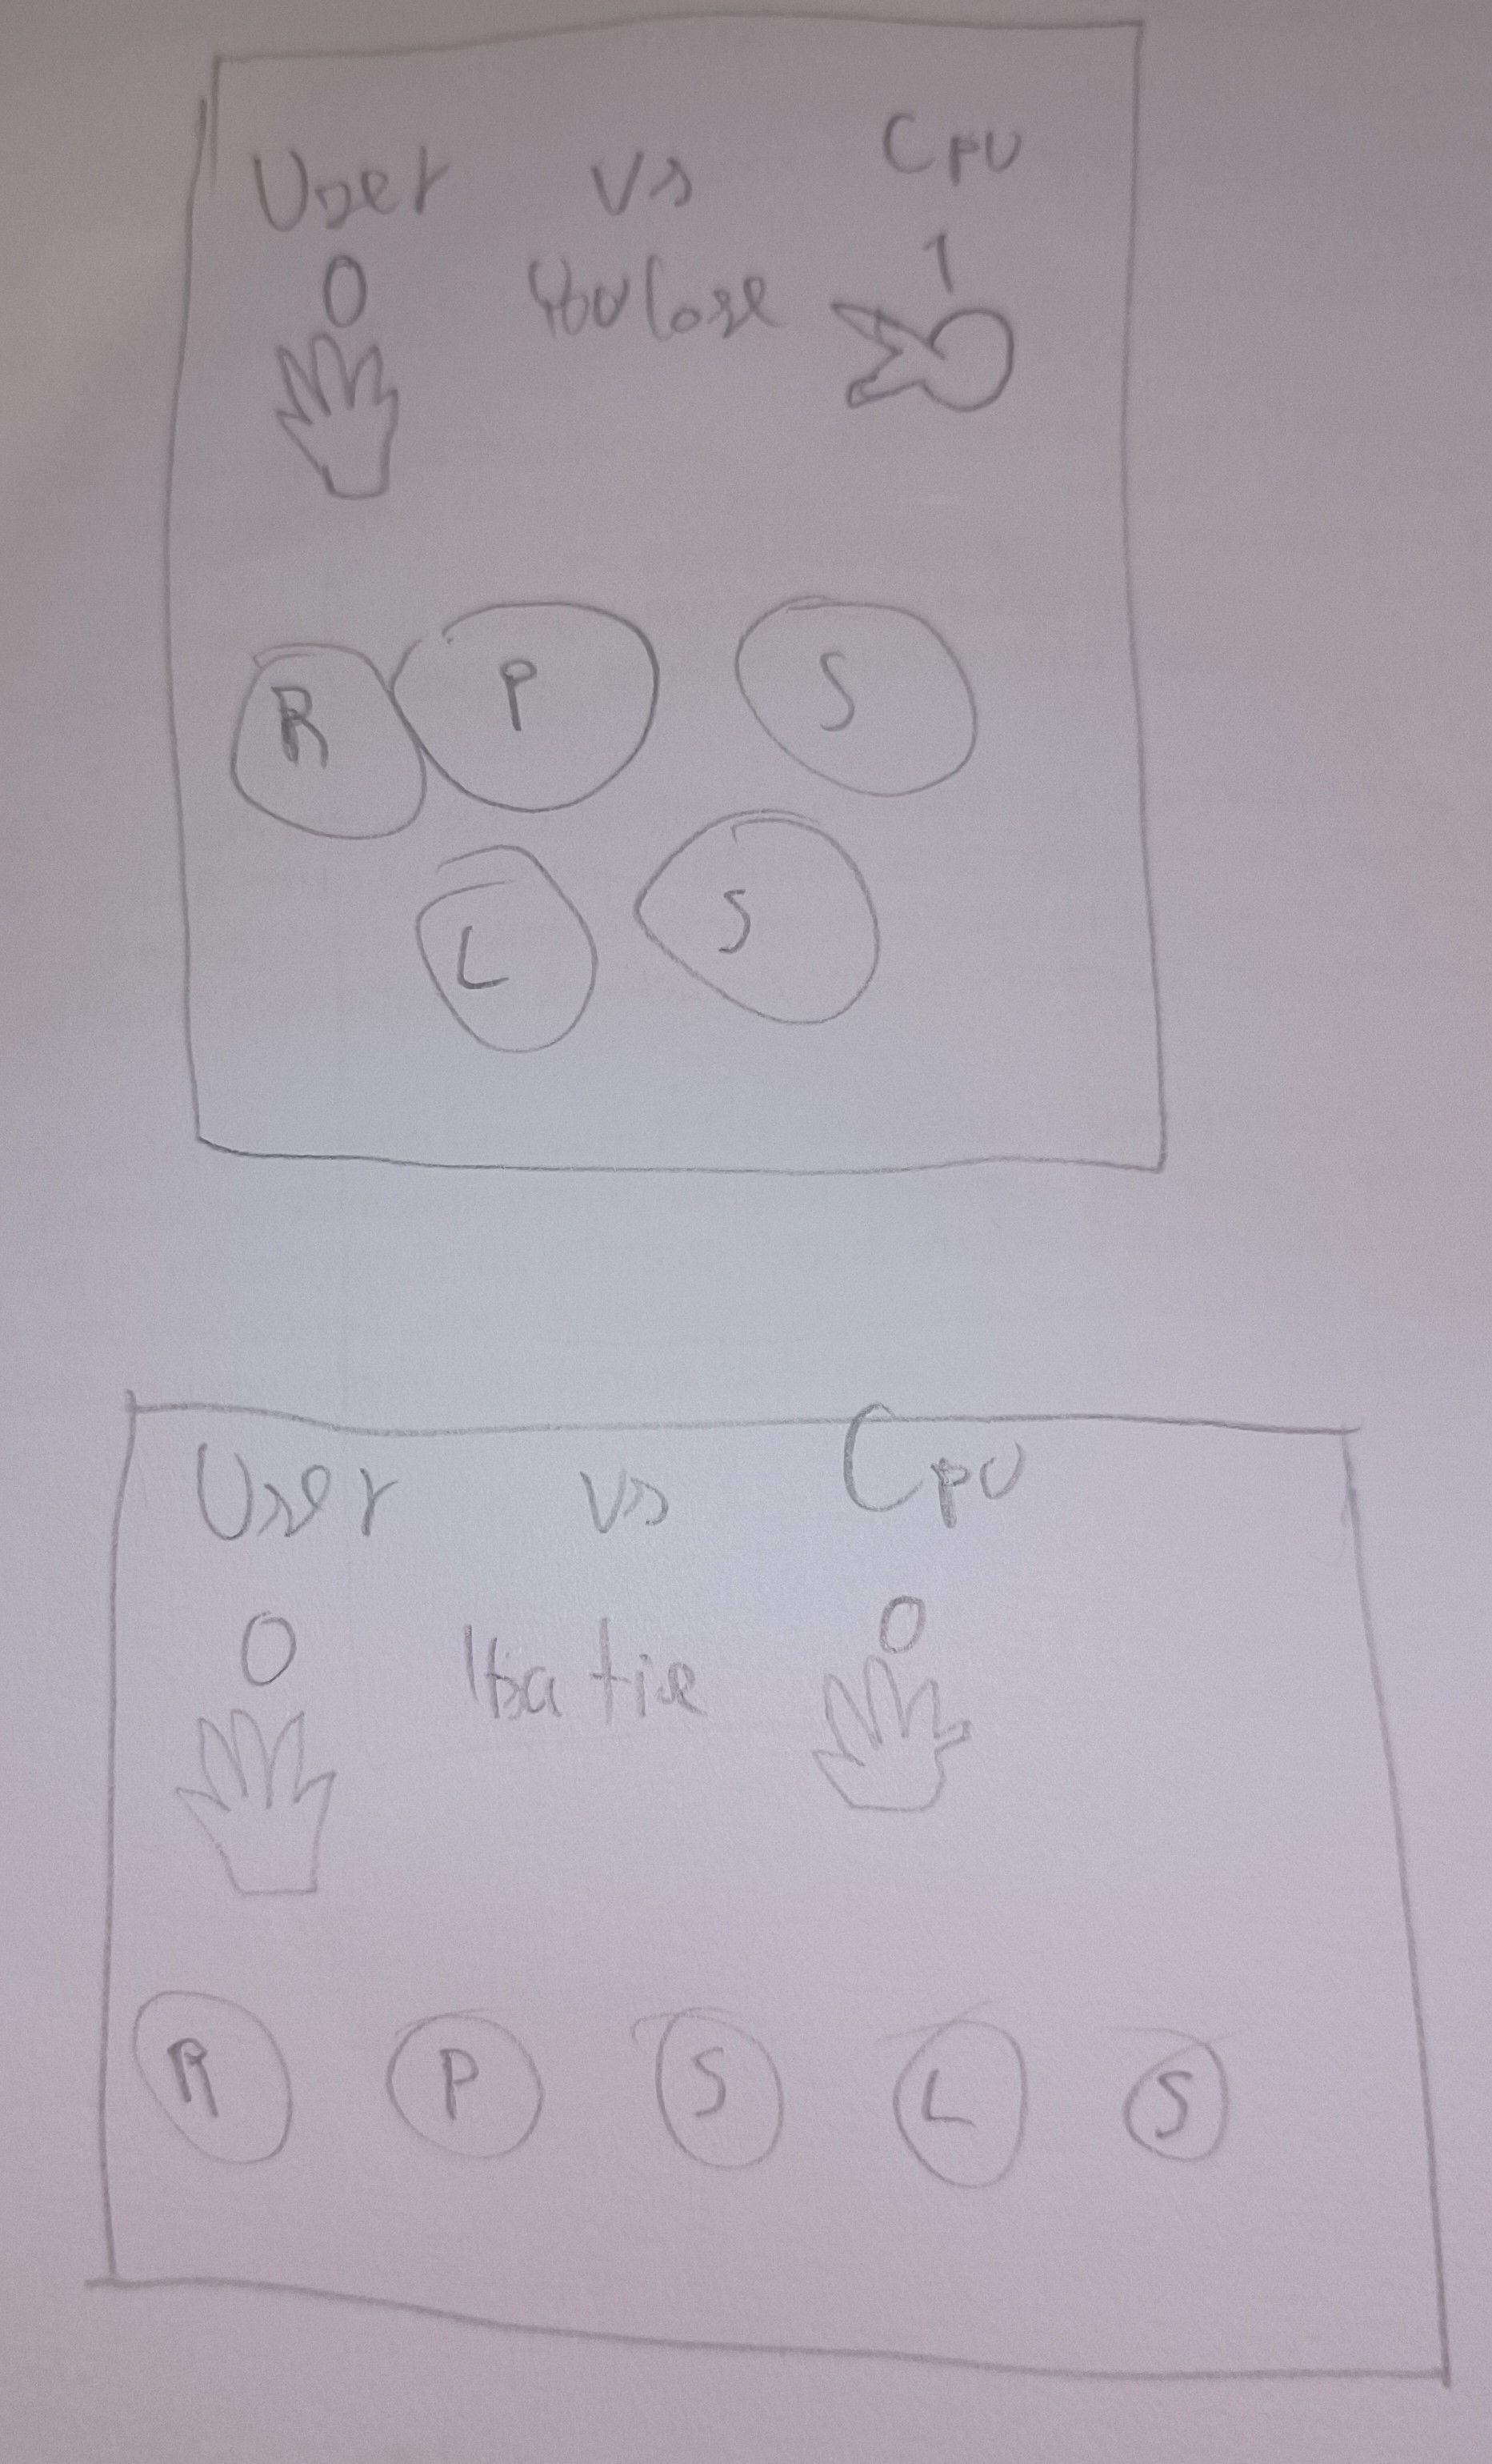 User vs Cpu
0 You lose 1
R P S
L S
User vs Cpu
0 Itsa tie 0
R P S L S